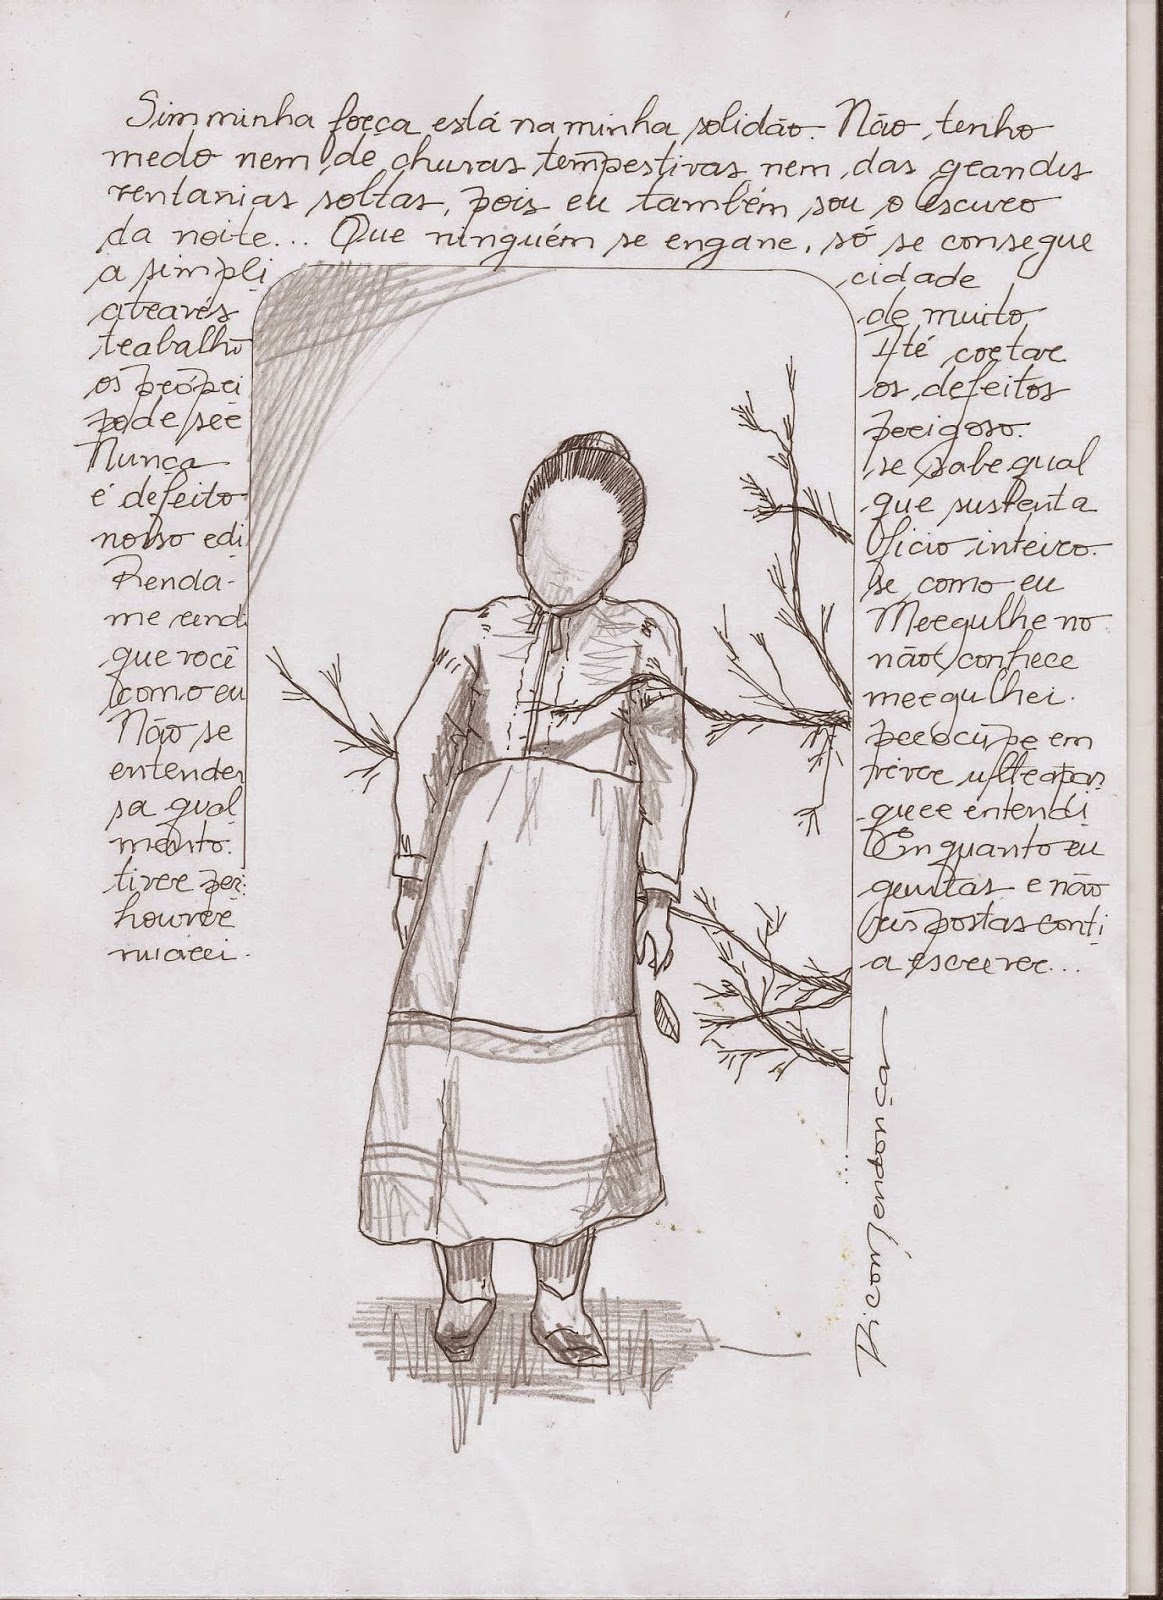 Sim minha força está na minha solidão. Não tenho
medo nem de chuvas tempestivas nem das grandes
ventanias soltas, pois eu também sou o escuro
da noite... Que ninguém se engane, só se consegue
a simpli cidade
através de muito
trabalho Até cortar
os própri os defeitos
pode ser perigoso.
Nunca se sabe qual
é defeito que sustenta
nosso edi fício inteiro.
Renda- se como eu
me rendi Mergulhe no
que você não conhece
como eu mergulhei.
Não se preocupe em
entender viver ultrapas
sa qual quer entendi
mento. Enquanto eu
tiver per guntas e não
houver respostas conti
nuarei a escrever...
Rico Mendonça